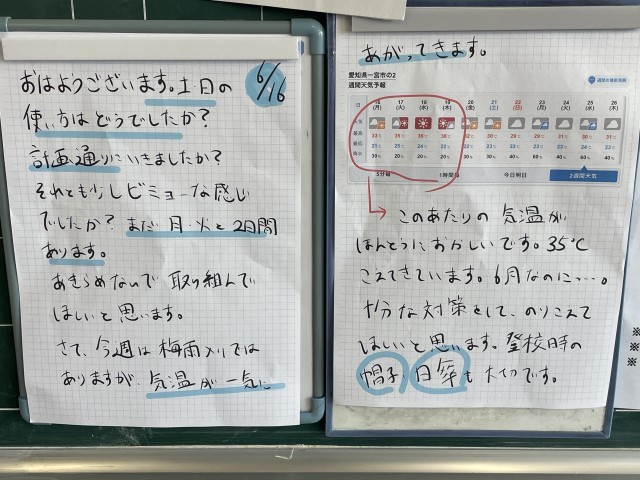 6/16
おはようございます。土日の
使い方はどうでしたか?
計画通りにいきましたか?
それとも少しビミョーな感じ
でしたか? まだ月・火と2日間
あります。
あきらめないで取り組んで
ほしいと思います。
さて、今週は梅雨入りでは
ありますが、気温が一気に
あがってきます。
愛知県一宮市の2
週間天気予報
日 16 17 18 19 20 21 22 23 24 25 26
(月) (火) (水) (木) (金) (土) (日) (月) (火) (水) (木)
1時間毎 今日明日 2週間天気
このあたりの気温が
ほんとうにおかしいです。35℃
こえてきています。6月なのに…。
十分な対策をして、のりこえて
ほしいと思います。登校時の
帽子、日傘も大切です。
※
※
※